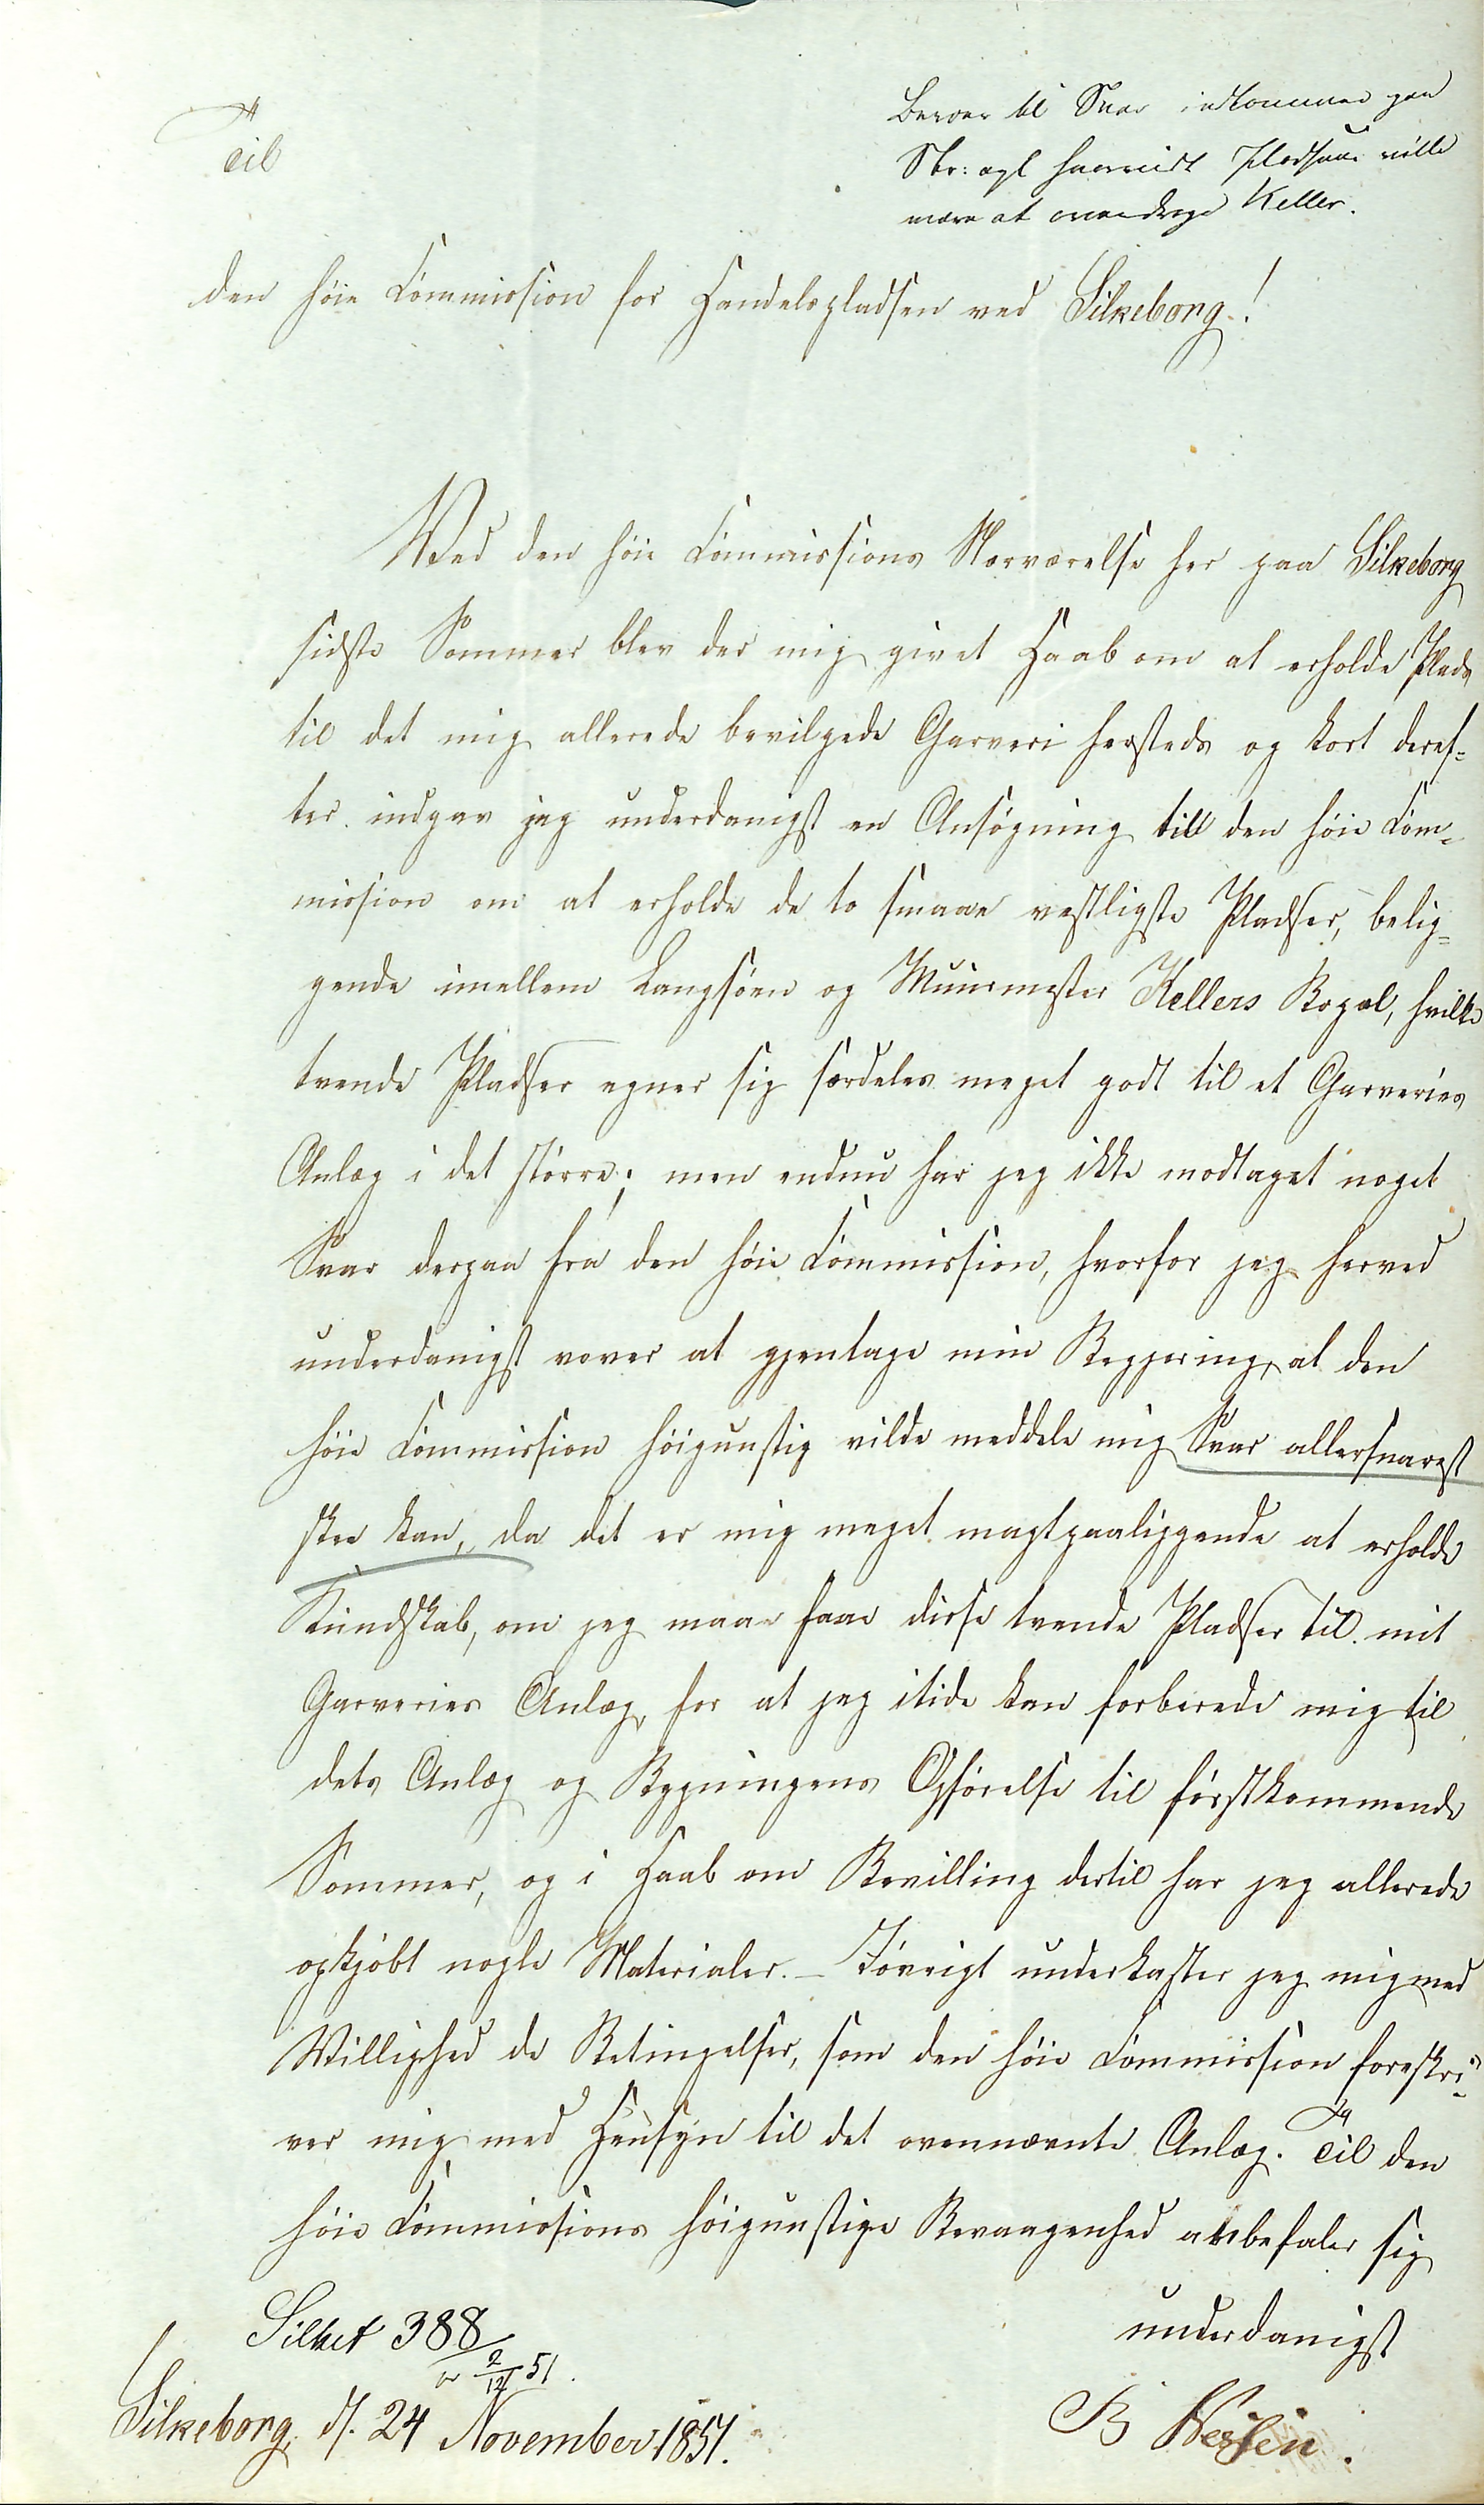 Til
Beroer til Svar indkommer paa
Skr: afl
være at Keller.
den høie Commission for Handelspladsen ved Silkeborg!
Ved den høie Commissions Nærværelse her paa Silkeborg
sidste Sommer blev der mig givet Haab om at erholde Plads
til det mig allerede bevilgede Garveri hersteds og kort deref-
ter indgav jeg underdanigst en Ansøgning till den høie Com-
mission om at erholde de to smaae vestligste Pladser, belig-
gende imellem Langsöen og Muurmester Kellers Bopæl, hvilke
tvende Pladser egner sig særdeles meget godt til et Garveries
Anlæg i det større; men endnu har jeg ikke modtaget noget
Svar derpaa fra den høie Commission, hvorfor jeg herved
underdanigst vover at gjentage min Begjering, at den
høie Commission høigunstig vilde meddele mig Svar allersnarest
skee kan, da det er mig meget magtpaaliggende at erholde
Kundskab, om jeg maae faae disse tvende Pladser til mit
Garveries Anlæg, for at jeg itide kan forberede mig til
dets Anlæg og Bygningens Opførelse til førstkommende
Sommer, og i Haab om Bevilling dertil har jeg allerede
opkjøbt nogle Materialer. – Iøvrigt underkaster jeg mig med
Willighed de Betingelser, som den høie Commission foreskri-
ver mig med Hensyn til det ovennævnte Anlæg. Til den
høie Commissions høigunstige Bevaagenhed anbefaler sig
underdanigst
Silket 388
2/12 51.
Silkeborg, d. 24 November 1851.
B